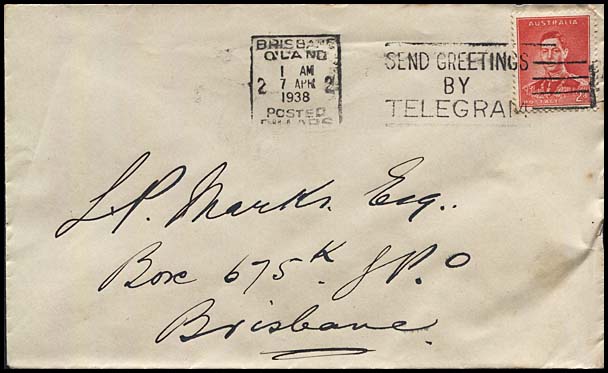 BRISBANE
Q'LAND
1 AM
2 7 APR 2
1938
POSTED
PILLARS
SEND GREETINGS
BY
TELEGRAM
AUSTRALIA
2D
POSTAGE
L.P. Marks. Esq.
Box 675K G.P.O
Brisbane.